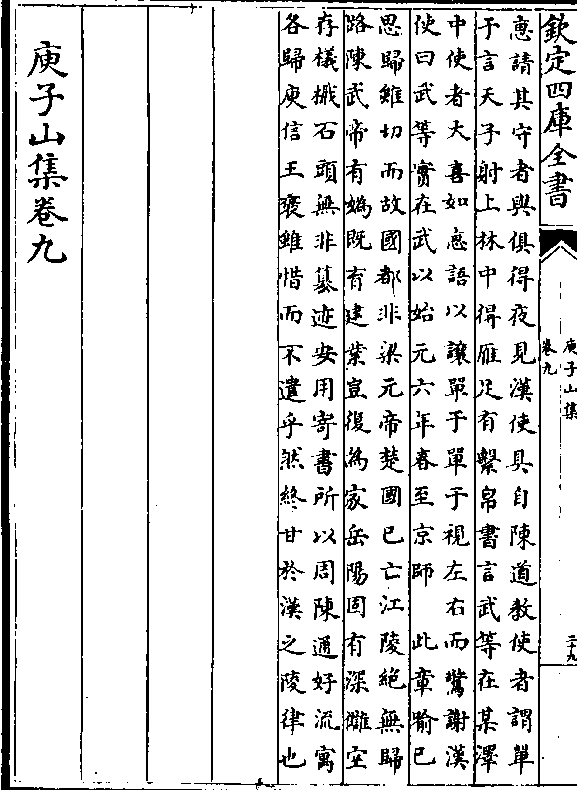 欽定四庫全書
庾子山集
卷九
二十九
惠請其守者與俱得夜見漢使具自陳道教使者謂單
于言天子射上林中得雁足有繫帛書言武等在某澤
中使者大喜如惠語以讓單于單于視左右而驚謝漢
使曰武等實在武以始元六年春至京師　此章喻已
思歸雖切而故國都非梁元帝楚國已亡江陵絶無歸
路陳武帝有媯既有建業豈復為家岳陽固有深讎空
存檥檝石頭無非纂迹安用寄書所以周陳通好流寓
各歸庾信王褒雖惜而不遣乎然終甘於漢之陵律也
庾子山集卷九